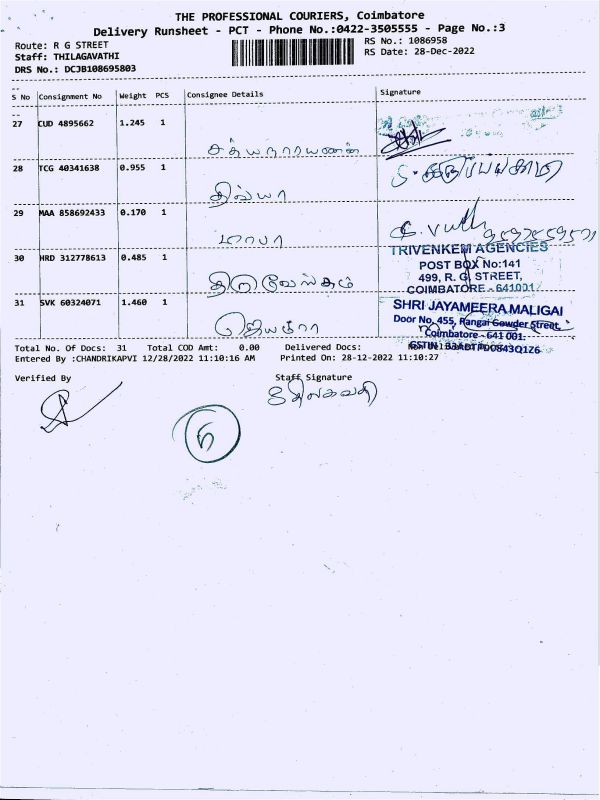 THE PROFESSIONAL COURIERS, Coimbatore
Delivery Runsheet - PCT - Phone No.:0422-3505555 - Page No.:3
Route: R G STREET
RS No.: 1086958
Staff: THILAGAVATHI
RS Date: 28-Dec-2022
DRS No.: DCJB108695803
S No Consignment No Weight PCS Consignee Details Signature
27 CUD 4895662 1.245 1
சத்யநாராயணன்
28 TCG 40341638 0.955 1
திவ்யா
29 MAA 858692433 0.170 1
30 HRD 312778613 0.485 1
TRIVENKEM AGENCIES
POST BOX No:141
499, R. G. STREET,
COIMBATORE - 641001
31 SVK 60324071 1.460 1
SHRI JAYAMEERA MALIGAI
Door No, 455, Rangai Gowder Street,
Coimbatore - 641 001.
Total No. Of Docs: 31 Total COD Amt: 0.00 Delivered Docs:
Entered By :CHANDRIKAPVI 12/28/2022 11:10:16 AM Printed On: 28-12-2022 11:10:27
Verified By Staff Signature
திலகவதி